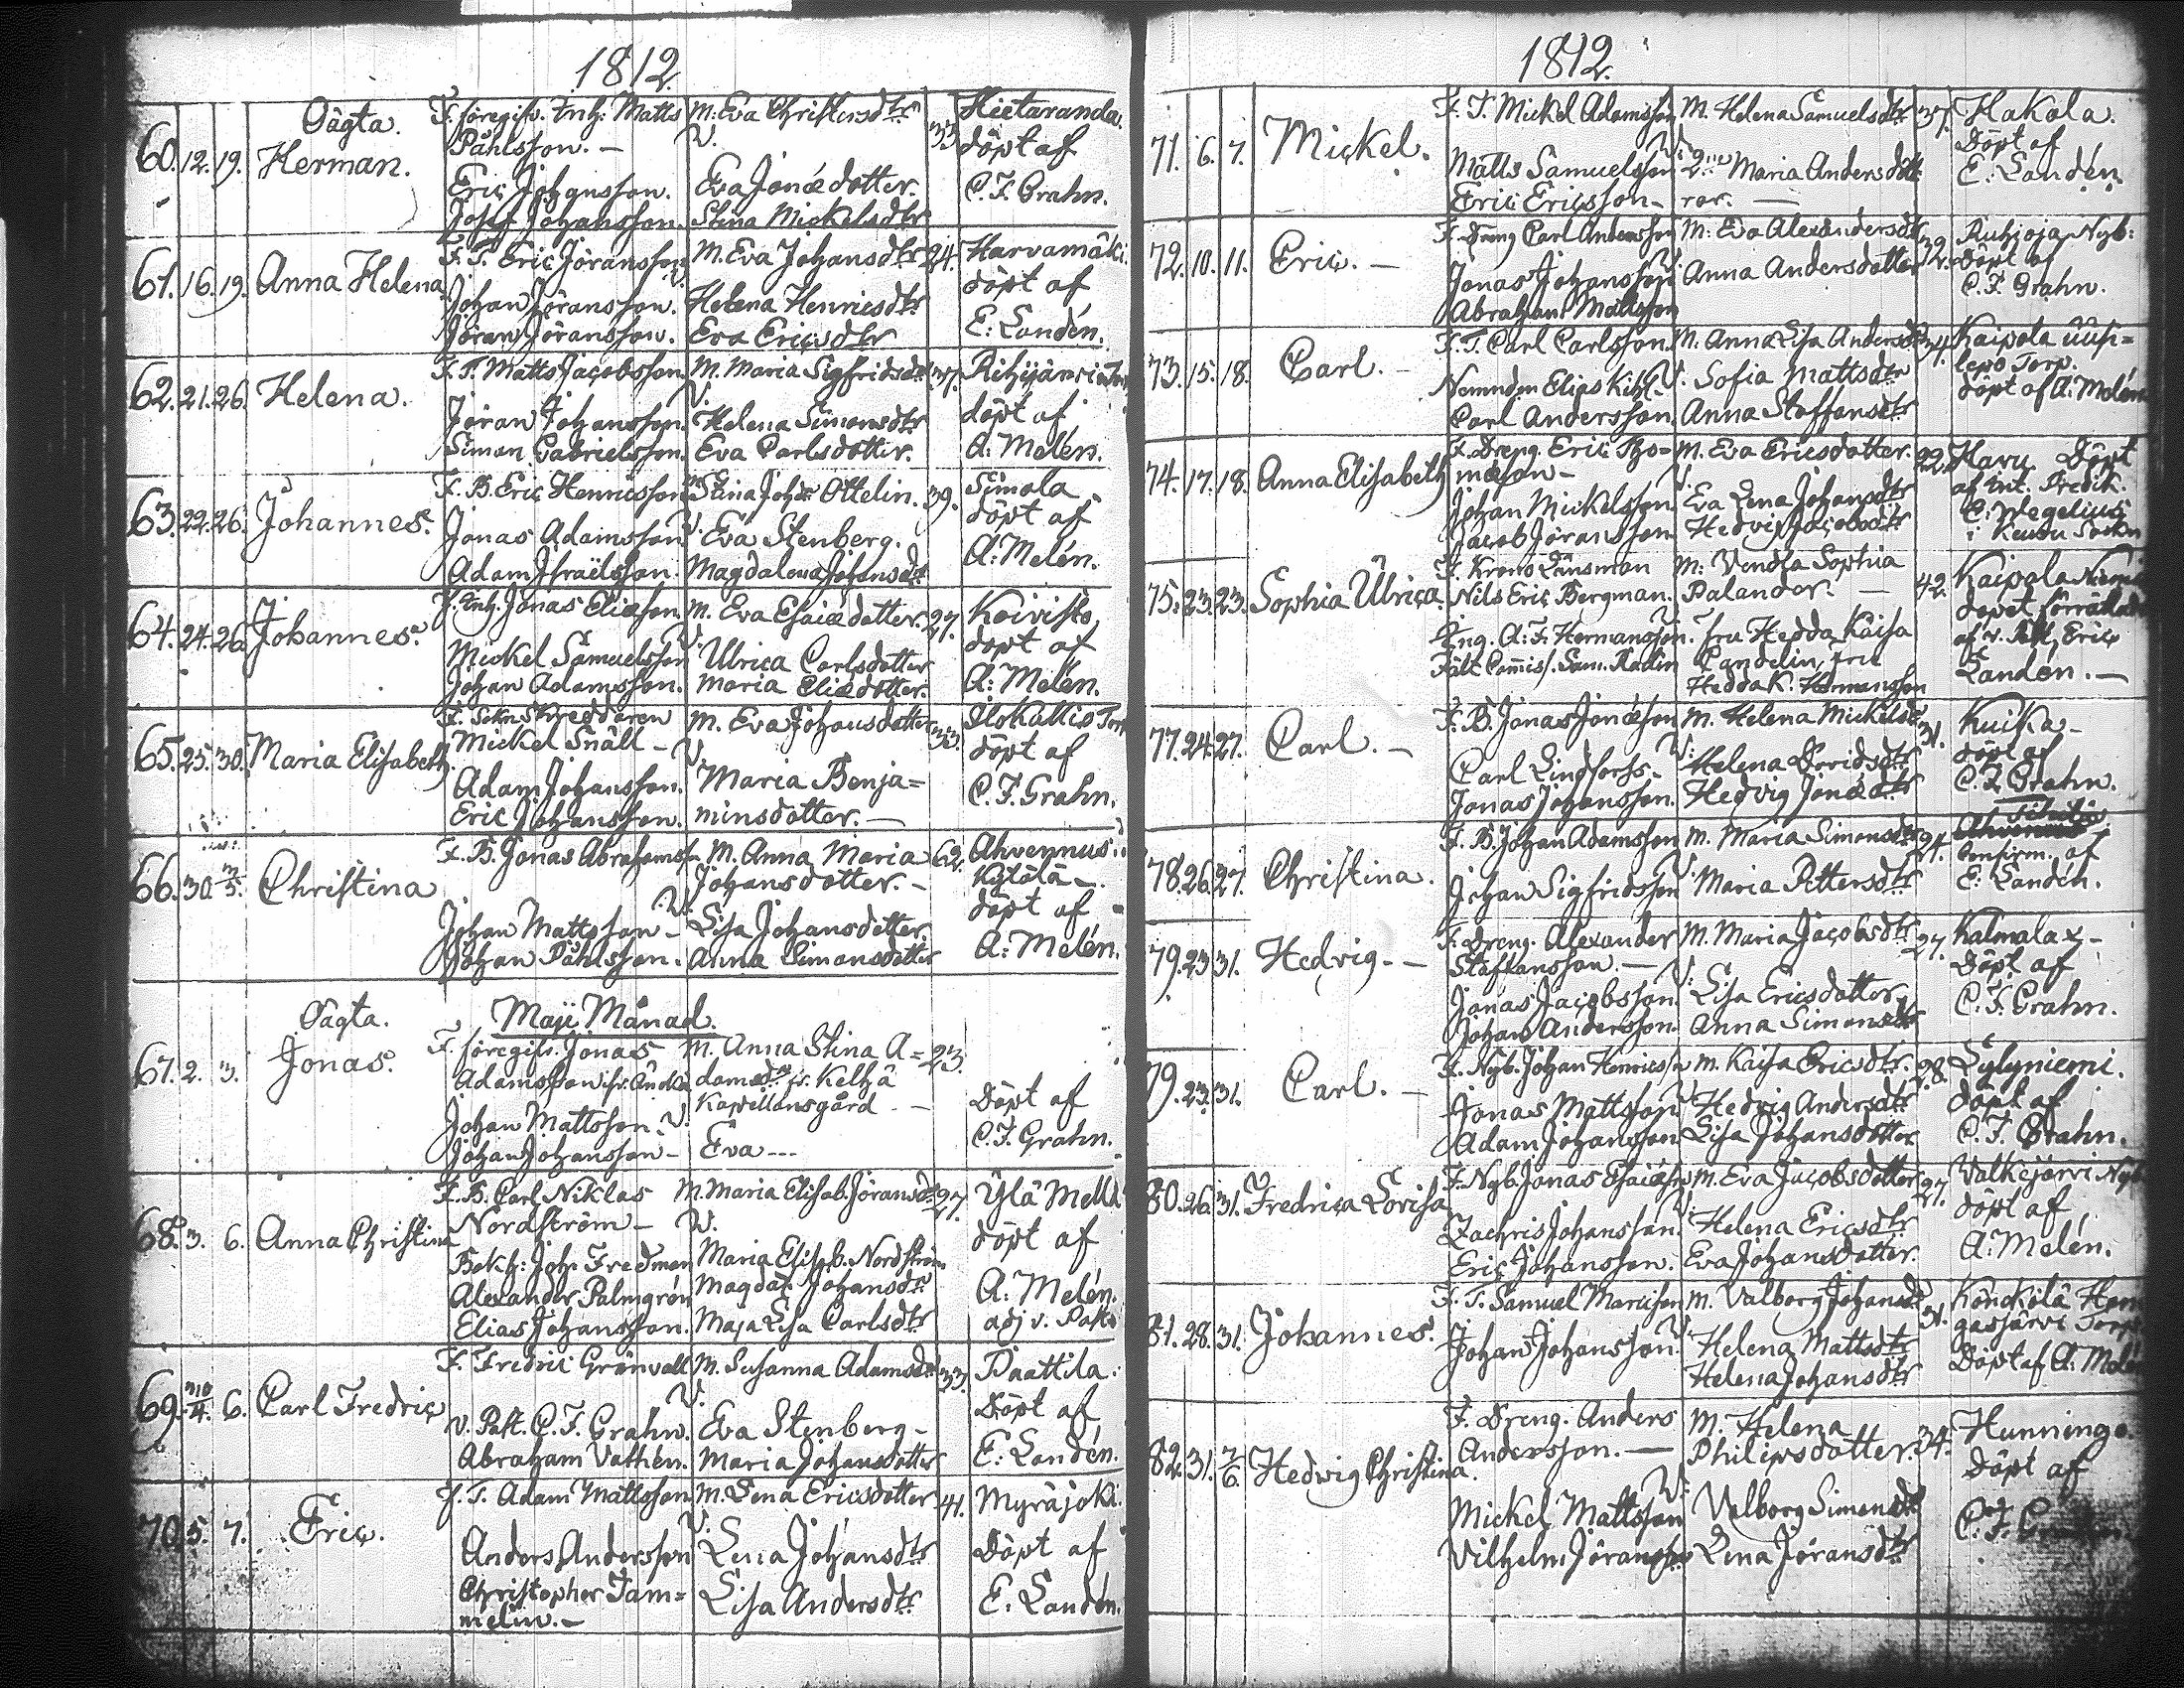 1812.
Oägta.
60. 12. 19. Herman.
F. föregifv. Inh: Matts
Påhlsson. —
Eric Johansson.
Josef Johansson.
M: Eva Christersdtr 33
V.
Eva Jonædotter.
Stina Mickelsdtr
Hietaranda.
döpt af
C. F. Grahn.
61. 16. 19. Anna Helena
F. T. Eric Jöransson
Johan Jöransson.
Jöran Jöransson.
M. Eva Johansdtr 24.
V.
Helena Henricsdtr
Eva Ericsdtr
Harvamäki.
döpt af
E: Landén.
62. 21. 26. Helena.
F. T. Matts Jacobsson
Jöran Johansson.
Simon Gabrielsson.
M. Maria Sigfridsdr 37.
V.
Helena Simonsdtr
Eva Carlsdotter.
Rihijärvi
döpt af
A: Melén.
63. 22. 26. Johannes.
F. B. Eric Henricsson
Jonas Adamsson
Adam Israëlsson.
M Stina Johdr Ottelin. 39.
V. Eva Stenberg.
Magdalena Johansdtr
Simola
döpt af
A: Melén.
64. 24. 26. Johannes.
F. Inh. Jonas Eliæson.
Mickel Samuelsson
Johan Adamsson.
M. Eva Esaiædotter. 27.
V.
Ulrica Carlsdotter
Maria Eliædotter.
Koivisto,
döpt af
A: Melén.
65. 25. 30. Maria Elisabeth.
F. Sokn Skreddaren
Mickel Snäll —
Adam Johansson.
Eric Johansson.
M. Eva Johansdotter 33.
V.
Maria Benja=
minsdotter. —
Ilokallio Torp
döpt af
C. F. Grahn.
66. 30. 3/5. Christina
F. B. Jonas Abrahamss.
Johan Mattsson —
Johan Påhlsson.
M. Anna Maria
Johansdotter. —
V.
Lisa Johansdotter.
Anna Simonsdotter
Ahvennus:
Kylölä —
döpt af
A: Melén.
Maji Månad.
Oägta.
67. 2. 3. Jonas.
F. föregifv. Jonas
Adamsson
Johan Mattsson.
Johan Johansson —
M. Anna Stina A= 23.
damsdr fr. Keltjä
Kapellansgård — —
V.
Eva ---
Döpt af
C. F. Grahn.
68. 3. 6. Anna Christina
F. B. Carl Niklas
Nordström —
Bokh: Joh: Fredman
Alexander Palmgrén
Elias Johansson.
M. Maria Elisab. Jöransdr 27.
V.
Maria Elisab. Nordström
Magdal. Johansdr
Maja Lisa Carlsdtr
Ylä Mella
döpt af
A: Melén.
adj v. Past:
69. 30/4. 6. Carl Fredric
F. Fredric Grönvall
V. Past. C. F. Grahn.
Abraham Vathén.
M. Susanna Adamsdr 33.
V.
Eva Stenberg —
Maria Johansdotter
Paattila.
Döpt af
E: Landén.
70. 5. 7. Eric.
F. T. Adam Mattsson
Anders Andersson
Christopher Tam=
melin. —
M. Lena Ericsdotter 41.
V.
Lena Johansdtr
Lisa Andersdtr
Myräjoki.
Döpt af
E: Landén.
1812.
71. 6. 7. Mickel.
F. T. Mickel Adamsson
Matts Samuelsson
Eric Ericsson —
M. Helena Samuelsdtr 37.
V.
2ne Maria Andersdött
rar. —
Hakola.
Döpt af
E: Landén.
72. 10. 11. Eric. —
F. Dreng Carl Andersson
Jonas Johansson
Abraham Mattsson
M: Eva Alexandersdr 32.
V.
Anna Andersdotter
Ruhjoja Nyb:
Döpt af
C. F. Grahn.
73. 15. 18. Carl. —
F. T. Carl Carlsson.
Nemndm Elias Kihl —
Carl Andersson.
M. Anna Lisa Andersdr 34.
V. Sofia Mattsdtr
Anna Staffansdtr
Kaipola Uusi=
lepo Torp.
döpt af A: Melén
74. 17. 18. Anna Elisabeth
F. Dreng. Eric Tho=
mæson —
Johan Mickelsson
Jacob Jöransson
M. Eva Ericsdotter. 22.
V.
Eva Lena Johansdtr
Hedvig Jacobsdtr
Havu Döpt
af Int. Predik.
C: Wegelius
i Keuru Sockn
75. 23. 23. Sophia Ulrica.
F. Krono Länsman
Nils Eric Bergman.
Ing. A: F. Hermansson.
Fält Commis. Sam. Rodin
M: Vendla Sophia
Palander. — 42.
fru Hedda Kaisa
Candelin, Fru
Hedda K. Hermansson
Kaipola Niemi
dopet förrättadt
af v. Past. Eric
Landén. —
77. 24. 27. Carl. —
F. B. Jonas Jonæson
Carl Lindfors —
Jonas Johansson.
M. Helena Mickelsdr 31.
V. Helena Davidsdtr
Hedvig Jonædtr
Kuika —
döpt af
C. F. Grahn.
78. 26. 27. Christina.
F. B. Johan Adamsson
Johan Sigfridsson
M. Maria Simonsdtr 24.
V.
Maria Pettersdtr
Confirm. af
E: Landén.
79. 23. 31. Hedvig. —
F. Dreng. Alexander
Staffansson. —
Jonas Jacobsson.
Johan Andersson.
M. Maria Jacobsdtr 27.
V.
Lisa Ericsdotter
Anna Simonsdtr
Kalmalax —
Döpt af
C. F. Grahn.
79. 23. 31. Carl. —
F. Nyb. Johan Henricss.
Jonas Mattsson
Adam Johansson
M. Kaisa Ericsdtr. 28.
V. Hedvig Andersdtr
Lisa Johansdotter
Sylyniemi.
döpt af
C. F. Grahn.
80. 26. 31. Fredrica Lovisa
F. Nyb Jonas Esaiæss.
Zachris Johansson.
Eric Johansson.
M. Eva Jacobsdotter 27.
V.
Helena Ericsdtr
Eva Johansdotter.
Valkejärvi Nyb
döpt af
A: Melén.
81. 28. 31. Johannes.
F. T. Samuel Marcisson
Johan Johansson.
M. Valborg Johansdr 31.
V.
Helena Mattsdtr
Helena Johansdtr
Könckölä Hen
gasjärvi Torp
Döpt af A: Melén
82. 31. 7/6. Hedvig Christina.
F. Dreng. Anders
Andersson. —
Mickel Mattsson
Vilhelm Jöransson
M. Helena
Philipsdotter. 34.
V.
Valborg Simonsdtr
Lena Jöransdtr
Hunningo.
Döpt af
C. F.